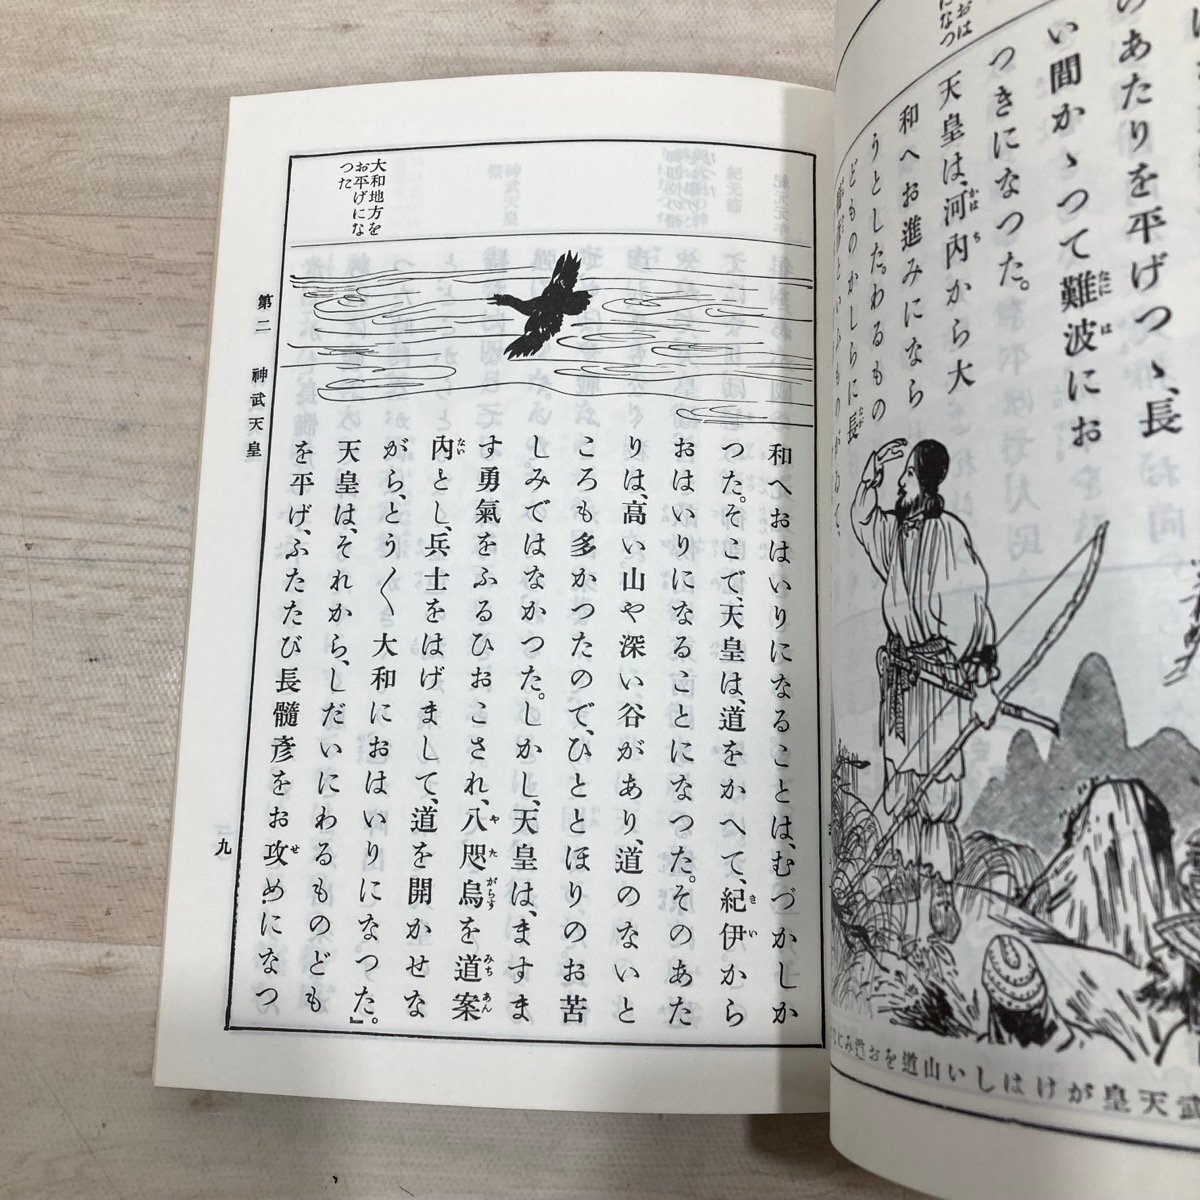 おは
になつ
のあたりを平げつゝ、長
い間かゝつて難波にお
つきになつた。
天皇は、河内から大
和へお進みになら
うとした。わるもの
どものかしらに長
武天皇がけはしい山道をお進みに
大和地方を
お平げにな
つた
和へおはいりになることは、むづかしか
つた。そこで、天皇は、道をかへて、紀伊から
おはいりになることになつた。そのあた
りは、高い山や深い谷があり、道のないと
ころも多かつたので、ひととほりのお苦
しみではなかつた。しかし、天皇は、ますま
す勇氣をふるひおこされ、八咫烏を道案
内とし、兵士をはげまして、道を開かせな
がら、とう〳〵大和におはいりになつた。』
天皇は、それから、しだいにわるものども
を平げ、ふたたび長髓彥をお攻めになつ
第二 神武天皇
九